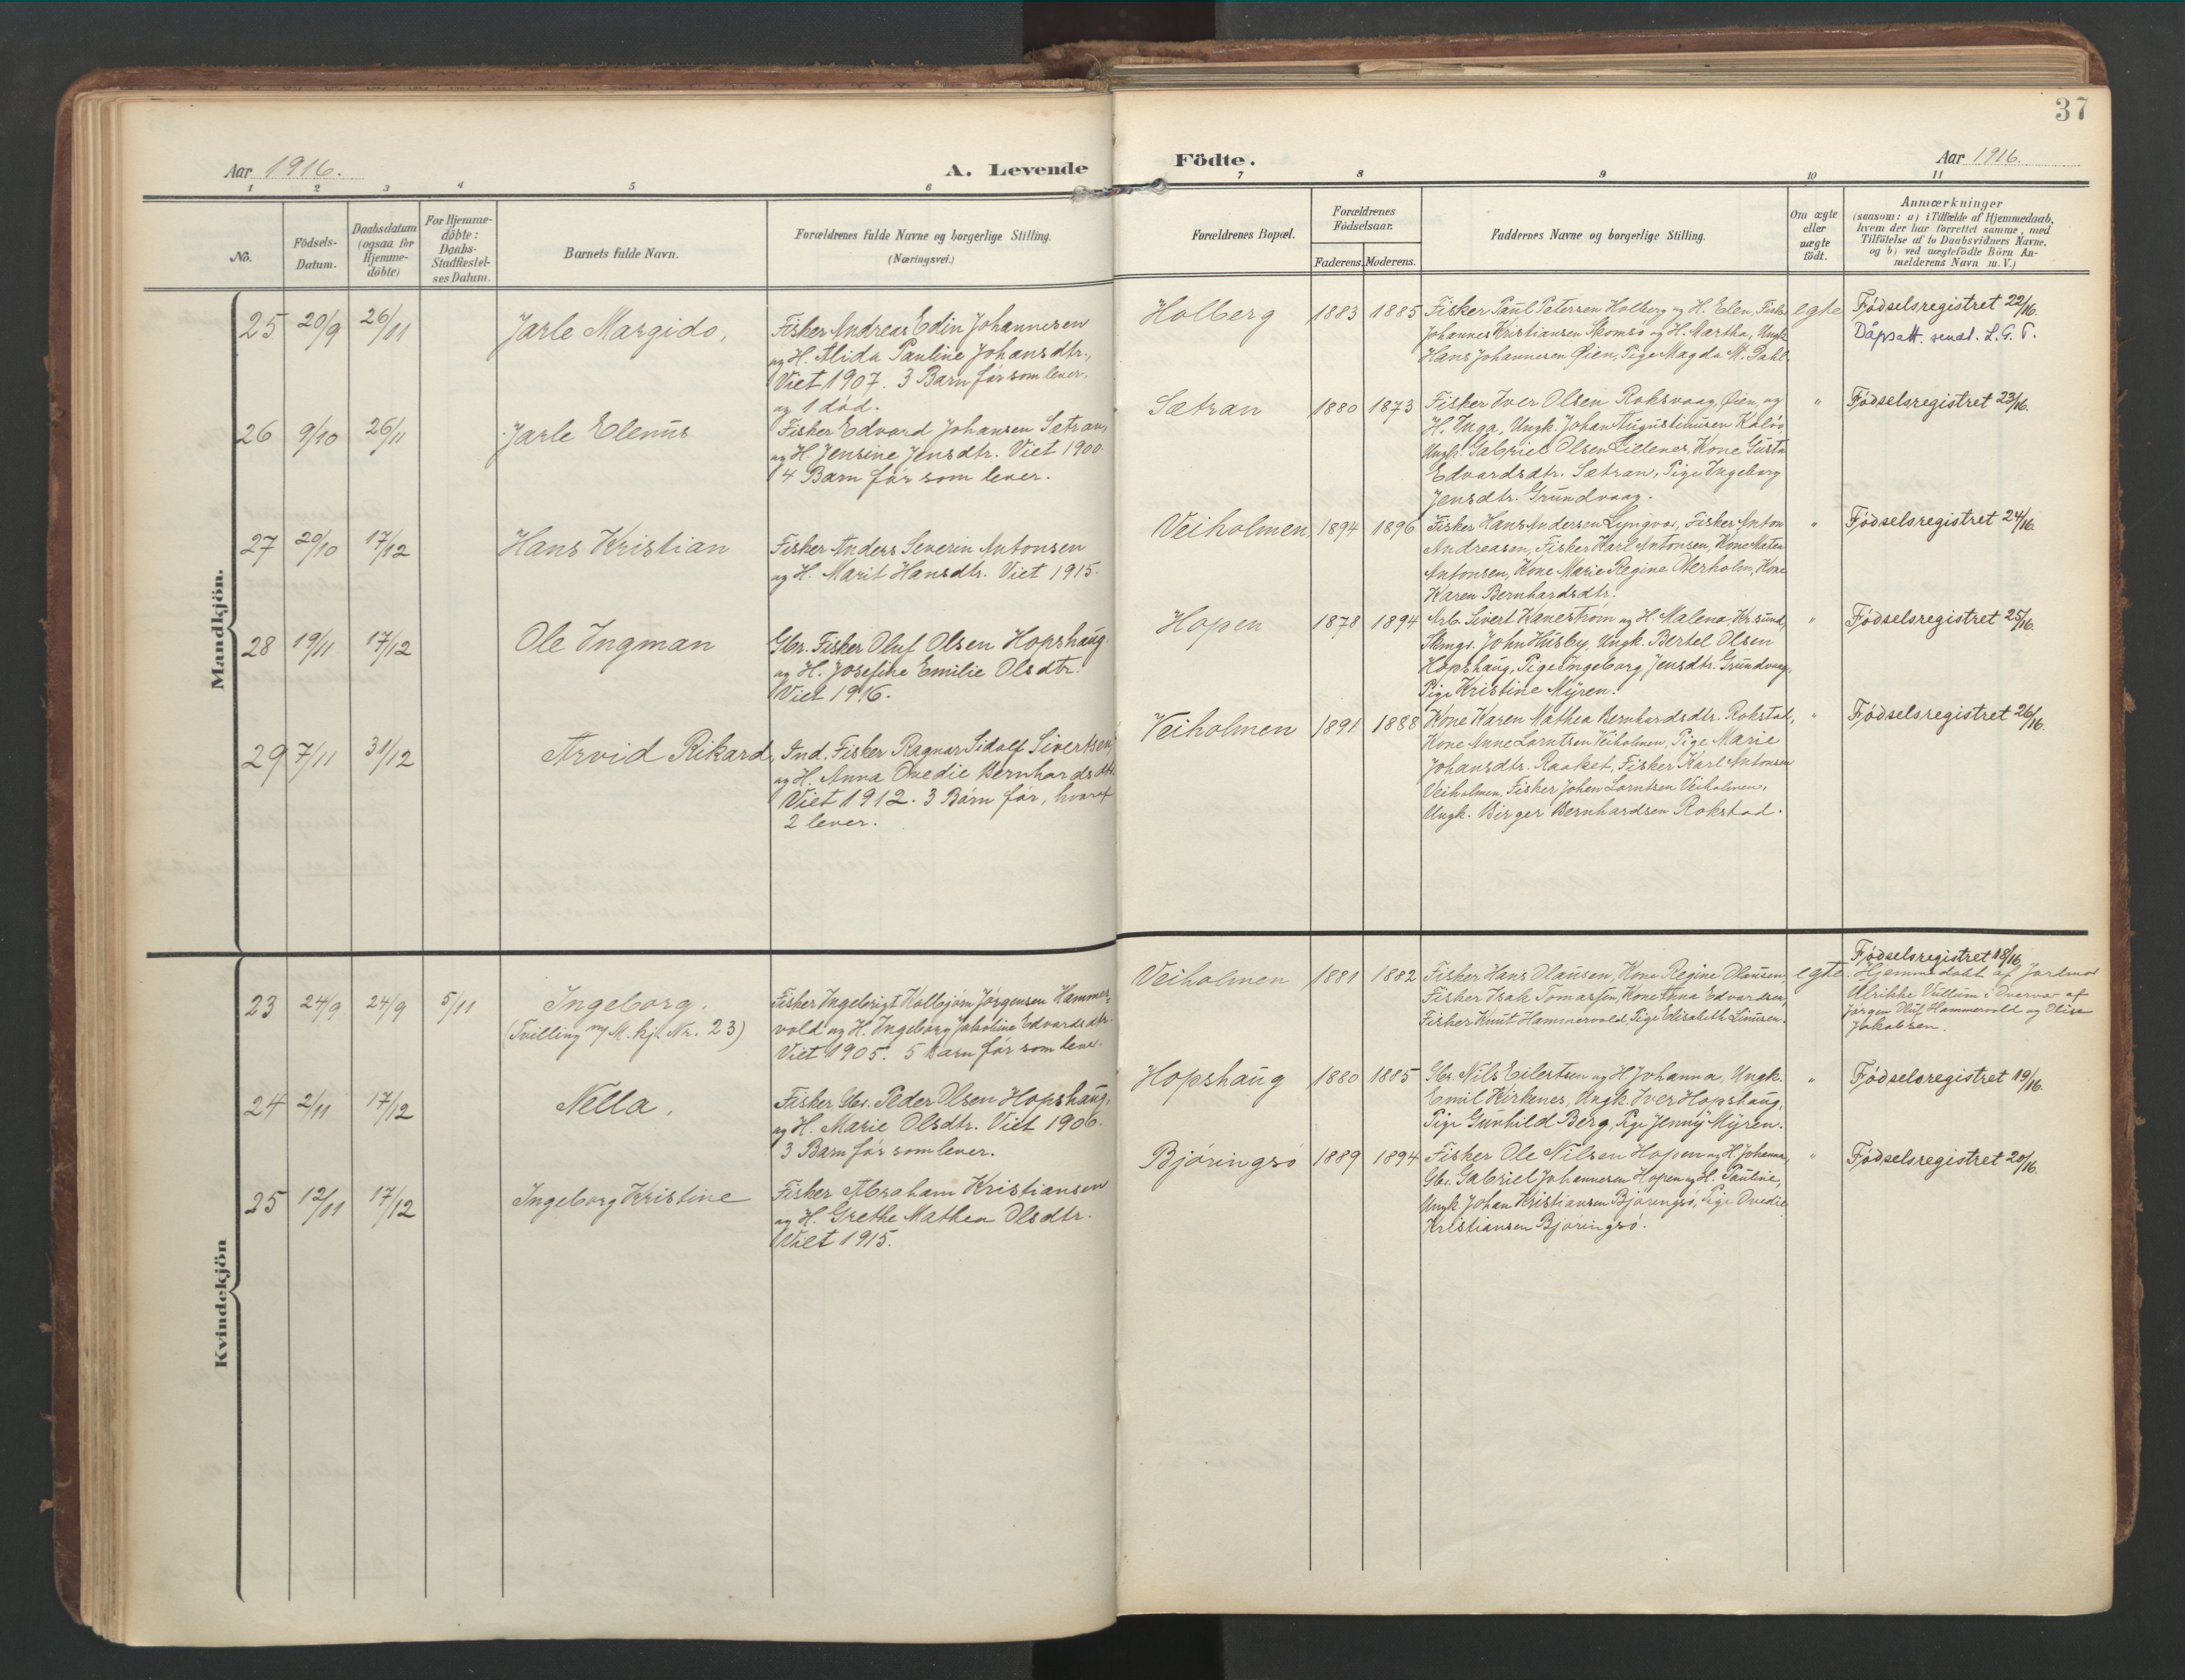 37
Aar 1916.
A. Levende
Födte.
Aar 1916.
1 2 3 4 5 6 7 8 9 10 11
No.
Födsels-
Datum.
Daabsdatum
(ogsaa for
Hjemme-
döbte)
For Hjemme-
döbte:
Daabs-
Stadfæstel-
ses Datum.
Barnets fulde Navn.
Forældrenes fulde Navne og borgerlige Stilling.
(Næringsvei.)
Forældrenes Bopæl.
Forældrenes
Födselsaar.
Faderens. Moderens.
Faddernes Navne og borgerlige Stilling.
Om ægte
eller
uægte
født.
Anmærkninger
(saasom: a) i Tilfælde af Hjemmedaab,
hvem der har forrettet samme, med
Tilföielse af to Daabsvidners Navne,
og b) ved uægtefödte Börn An-
melderens Navn m. V.)
Mandkjön.
25 20/9 26/11 Jarle Margido,
Fisker Andreas Edin Johannesen
og H. Alida Pauline Johansdtr.,
Viet 1907. 3 Barn før som lever.
og 1 død.
Holberg 1883 1885
Fisker Paul Petersen Holberg og H. Elen, Fisker
Johannes Kristiansen Skomsö og H. Martha, Ungk.
Hans Johannesen Øien, Pige Magda M. Dahl.
egte
Födselsregistret 22/16.
Dåpsatt. sendt. L. G. T.
26 9/10 26/11 Jarle Elenus
Fisker Edvard Johansen Sætran,
og H. Jensine Jensdtr. Viet 1900.
4 Barn før som lever.
Sætran 1880 1873
Fisker Iver Olsen Roksvaag, Øien, og
H. Inga, Ungk. Johan Augustinusen Kalöö,
Ungk. Gabriel Olsen Lillenes, Kone Gusta
Edvardsdtr. Sætran, Pige Ingeborg
Jensdtr. Grundvaag.
"
Födselsregistret 23/16.
27 20/10 17/12 Hans Kristian
Fisker Anders Severin Antonsen
og H. Marit Hansdtr. Viet 1915.
Veiholmen, 1894 1896
Fisker Hans Andersen Lyngvær, Fisker Anton
Andreasen, Fisker Karl Antonsen, Kone Mater
Antonsen, Kone Marie Regine Oterholm, Kone
Karen Bernhardsdtr.
"
Födselsregistret 24/16.
28 19/11 17/12 Ole Ingman
Gbr. Fisker Oluf Olsen Hopshaug.
og H. Josefine Emilie Olsdtr.
Viet 1916.
Hopen 1878 1894
Arb. Sivert Kanestrøm og H. Malena, Kr.sund,
Skmgr. John Husby, Ungk. Bertel Olsen
Hopshaug, Pige Ingeborg Jensdtr. Grundvaag,
Pige Kristine Myren.
"
Födselsregistret 25/16.
29 7/11 31/12 Arvid Rikard,
Ind. Fisker Ragnar Sidolf Sivertsen,
og H. Anna Ovedie Bernhardsdtr.
Viet 1912. 3 Børn før, hvoraf
2 lever.
Veiholmen 1891 1888
Kone Karen Mathea Bernhardsdtr. Rokstad,
Kone Anne Lorntsen Veiholmen, Pige Marie
Johansdtr. Raaket, Fisker Karl Antonsen
Veiholmen, Fisker Johan Lorntsen Veiholmen,
Ungk. Birger Bernhardsen Rokstad.
"
Födselsregistret 26/16.
Kvindekjön
23 24/9 24/9 5/11 Ingeborg.
(Tvilling m/ M. kj. Nr. 23)
Fisker Ingebrigt Kolbjørn Jørgensen Hammer-
vold og H. Ingeborg Jakobine Edvardsdtr.
Viet 1905. 5 Barn før som lever.
Veiholmen 1881 1882
Fisker Hans Olausen, Kone Regine Olausen,
Fisker Isak Tomassen, Kone Anna Edvardsen,
Fisker Knut Hammervold, Pige Elisabeth Linusen.
egte.
Födselsregistret 18/16.
Hjemmedøbt af Jordmor
Ulrikke Vullum i Overvær af
Jørgen Oluf Hammervold og Olise
Jakobsen.
24 2/11 17/12 Nella,
Fisker, Gbr. Peder Olsen Hopshaug,
og H. Marie Olsdtr. Viet 1906.
3 Barn før som lever.
Hopshaug 1880 1885
Gbr. Nils Eilertsen og H. Johanna, Ungk.
Emil Kirkenes, Ungk. Iver Hopshaug,
Pige Gunhild Berg, Pige Jenny Myren.
"
Födselsregistret 19/16.
25 12/11 17/12 Ingeborg Kristine
Fisker Abraham Kristiansen
og H. Grethe Mathea Olsdtr.
Viet 1915.
Bjøringsø 1889 1894
Fisker Ole Nilsen Hopen og H. Johanna,
Gbr. Gabriel Johannesen Hopen og H. Pauline,
Ungk. Johan Kristiansen Bjøringsø, Pige Ovedie
Kristiansen Bjøringsø.
"
Födselsregistret 20/16.